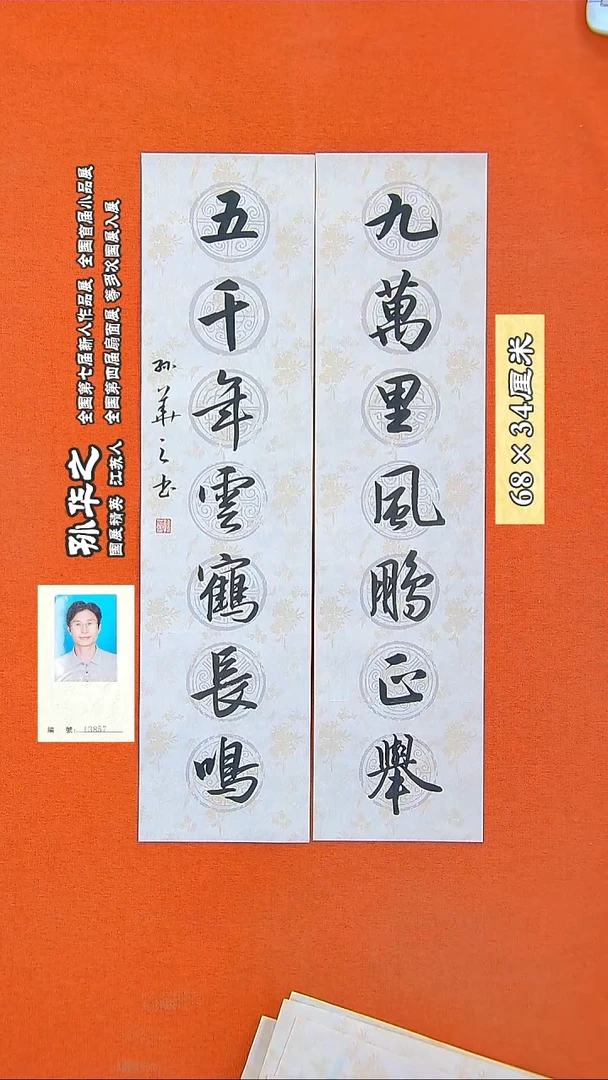 九萬里風鵬正舉
五千年雲鶴長鳴
孙華之书
孙华之
国展精英 江苏人
全国第七届新人作品展 全国首届小品展
全国第四届扇面展 等多次国展入展
68×34厘米
編 號: 13857